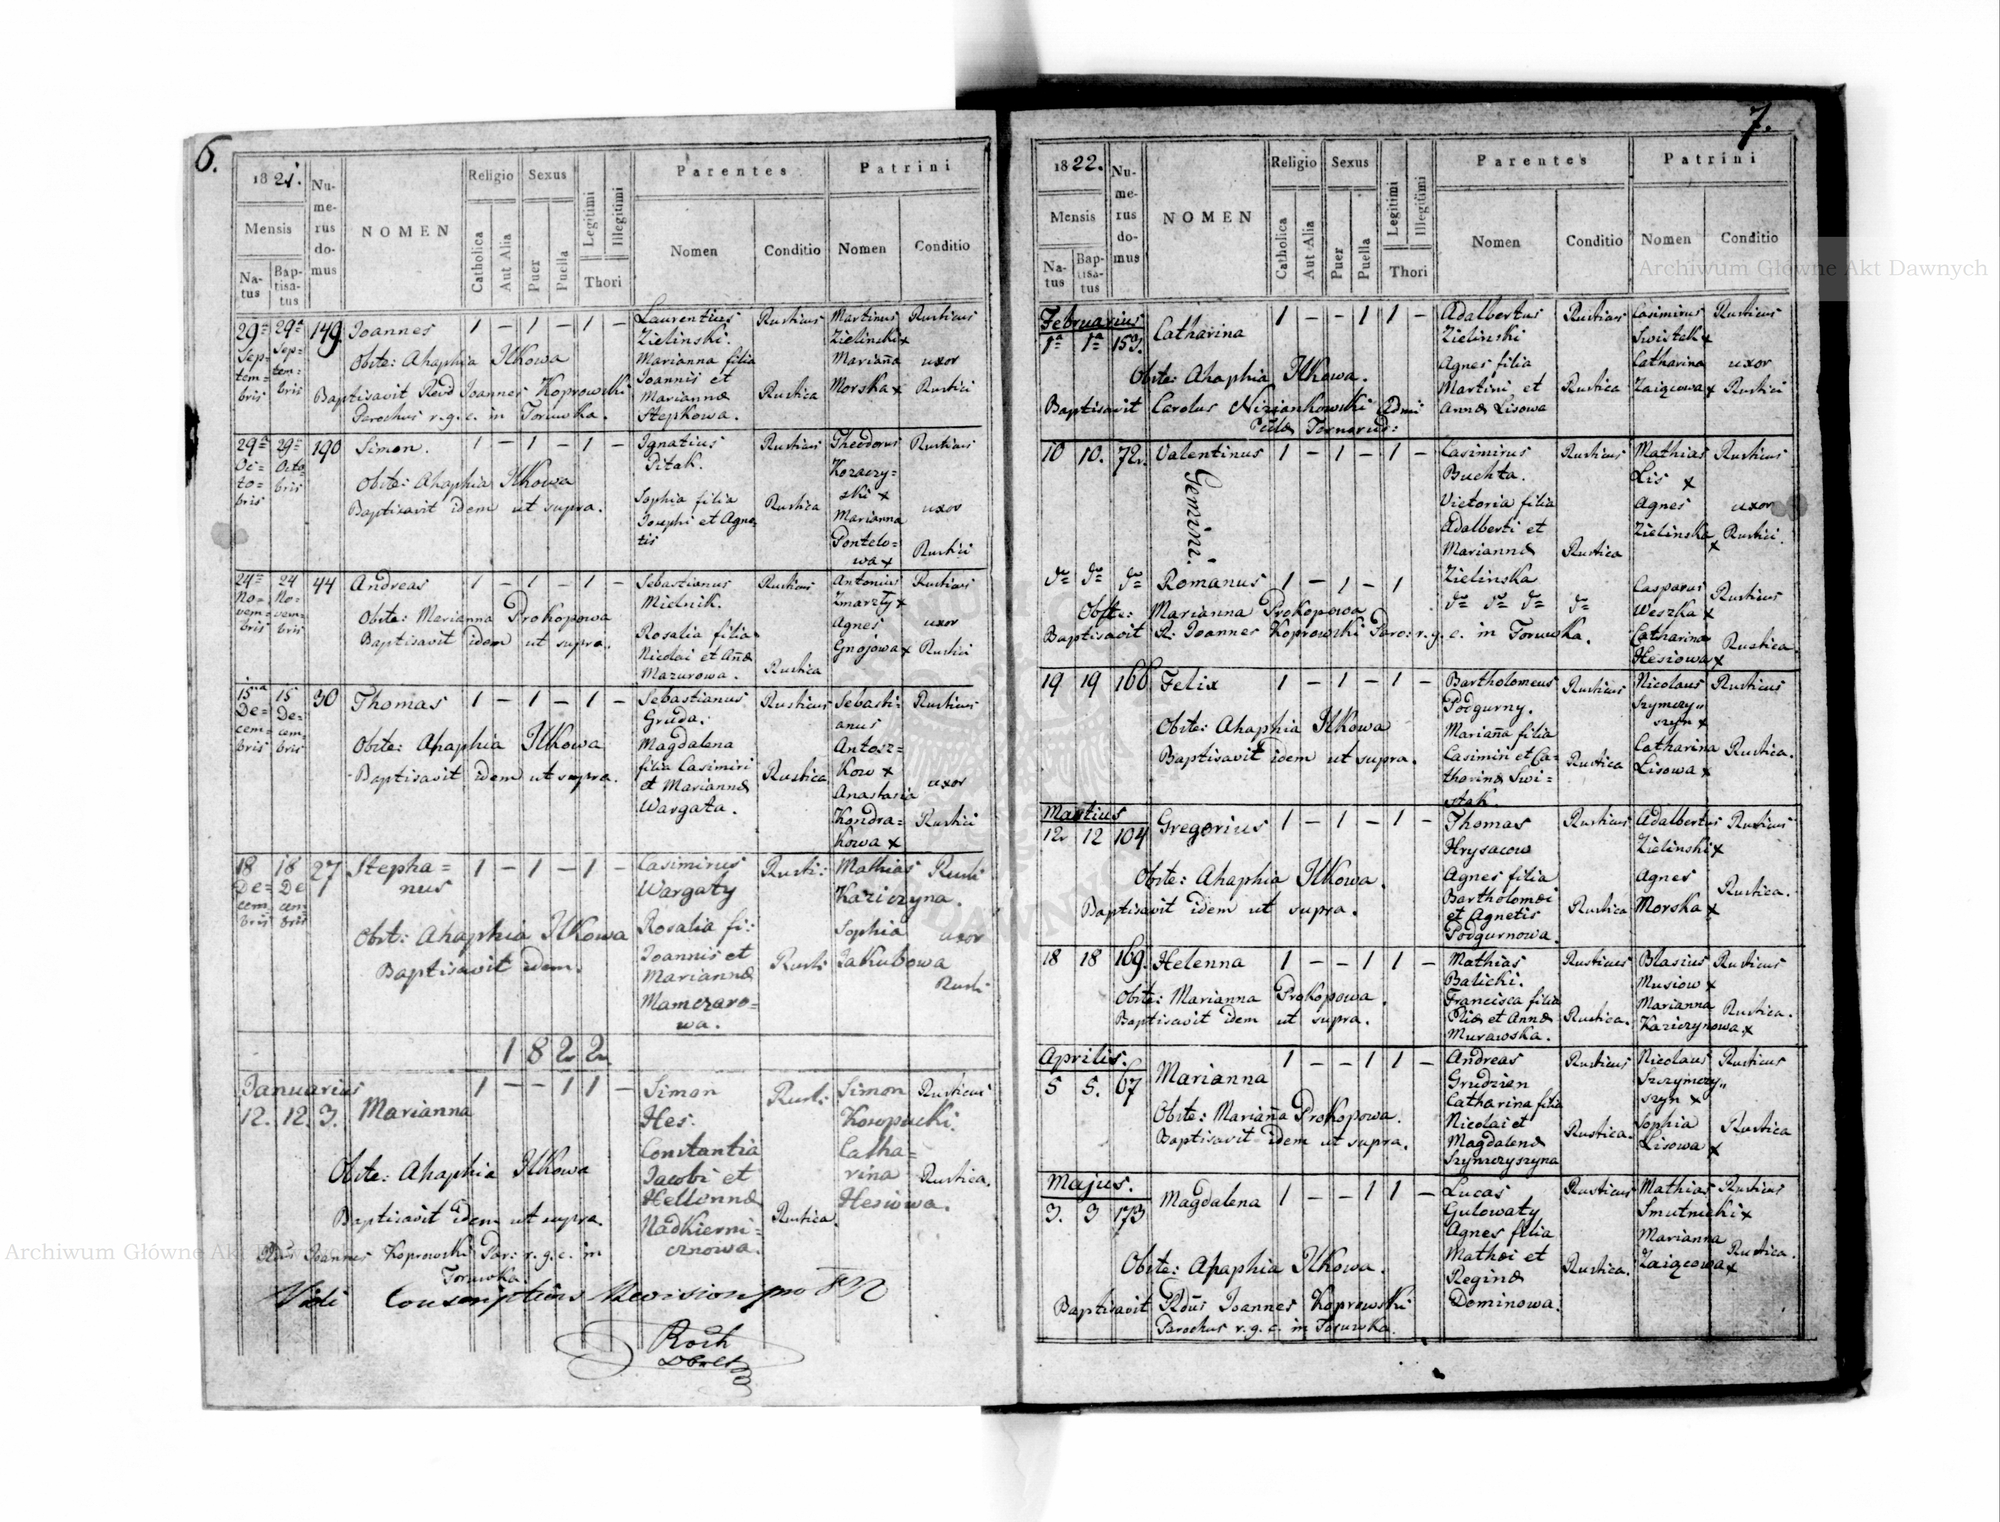 6.
1821.
Numerus domus
NOMEN
Religio
Sexus
Legitimi
Illegitimi
Parentes
Patrini
Mensis
Catholica
Aut Alia
Puer
Puella
Thori
Nomen
Conditio
Nomen
Conditio
Natus
Baptisatus
29 29 149. Joannes 1 – 1 – 1 – Laurentius Rusticus Martinus Rusticus
Sep= Sep= Zielinski. Zielinski x
tem= tem= Obste: Ahaphia Ilkowa Marianna filia Mariana uxor
bris bris Joannis et Rustica Morska x Rustici
Baptisavit Revd Joannes Koprowski Mariannæ
Parochus r. g. c. in Toruwka. Stepkowa.
29 29 190 Simon. 1 – 1 – 1 – Ignatius Rusticus Theodorus Rusticus
Oc= Octo Pitak. Kozaczy=
to= bris Obste: Ahaphia Ilkowa ski x
bris Baptisavit idem ut supra. Sophia filia Rustica Marianna uxor
Josephi et Agne= Pontelo= Rustici
tis wa x
24 24 44 Andreas 1 – 1 – 1 – Sebastianus Rusticus Antonius Rusticus
No= No= Mielnik. Zmarzły x
vem= vem= Obste: Marianna Prokopowa Agnes uxor
bris bris Baptisavit idem ut supra. Rosalia filia Gnojowa x Rustici
Nicolai et Añæ Rustica
Mazurowa.
15 15 30 Thomas 1 – 1 – 1 – Sebastianus Rusticus Sebasti= Rusticus
De= De= Gruda. anus
cem= cem Obste: Ahaphia Ilkowa Magdalena Antosz=
bris bris Baptisavit idem ut supra. filia Casimiri Rustica kow x
et Mariannæ Anastasia uxor
Wargata. Kondra= Rustici
kowa x
18 18 27 Stepha= 1 – 1 – 1 – Casimirus Rusti: Mathias Rusti
De= De nus Wargaty Kaziczyna.
cem cem
bris bris Obst: Ahaphia Ilkowa Rosalia fi: Sophia uxor
Baptisavit idem. Joannis et Rusti Jakubowa
Mariannæ Rusti
Mamczaro=
wa.
1822
Januarius 1 – – 1 1 – Simon Rusti: Simon Rusticus
12. 12. 3. Marianna Hes. Kosopucki.
Constantia Catha=
Obste: Ahaphia Ilkowa Jacobi et rina Rustica.
Hellennæ Hesiowa.
Baptisavit idem ut supra. Nadkierni= Rustica.
Joannes Koprowski Par: r. g. c. in cznowa.
Toruwka.
Vidi
Roch
7.
1822.
Numerus domus
NOMEN
Religio
Sexus
Legitimi
Illegitimi
Parentes
Patrini
Mensis
Catholica
Aut Alia
Puer
Puella
Thori
Nomen
Conditio
Nomen
Conditio
Natus
Baptisatus
Februarius Catharina 1 – – 1 1 – Adalbertus Rusticus Casimirus Rusticus
1a 1a 153. Zielinski Swistek x
Obste: Ahaphia Ilkowa. Agnes filia Catharina uxor
Martini et Rustica Zaiącowa x Rustici
Baptisavit Carolus Niziankowski Admi Annæ Lisowa
10 10. 72. Valentinus 1 – 1 – 1 – Casimirus Rusticus Mathias Rusticus
Gemini. Buchta. Lis x
Victoria filia Agnes uxor
Adalberti et Zielinska x Rustici.
Mariannæ Rustica
Zielinska
do do do Romanus 1 – 1 – 1 do do do do Casparus Rusticus
Obste: Marianna Prokopowa Weszka x
Baptisavit R. Joannes Koprowski Paro: r. g. c. in Toruwka. Catharina Rustica.
Hesiowa x
19 19 166 Felix 1 – 1 – 1 – Bartholomeus Rusticus Nicolaus Rusticus
Podgurny. Szymczy„
Obste: Ahaphia Ilkowa Mariana filia szyn x
Baptisavit idem ut supra. Casimiri et Ca= Rustica Catharina Rustica.
tharinæ Swi= Lisowa x
stak.
Martius
12 12 104 Gregorius 1 – 1 – 1 – Thomas Rusticus Adalbertus Rusticus
Hrysacow Zielinski x
Obste: Ahaphia Ilkowa. Agnes filia Agnes
Baptisavit idem ut supra. Bartholomæi Rustica Morska x Rustica.
et Agnetis
Podgurnowa.
18 18 169. Helenna 1 – – 1 1 – Mathias Rusticus Blasius Rusticus
Balicki. Musiow x
Obste: Marianna Prokopowa. Francisca filia Marianna
Baptisavit idem ut supra. et Annæ Rustica. Kaziczynowa x Rustica.
Murawska.
Aprilis. 1 – – 1 1 – Andreas Rusticus Nicolaus Rusticus
5 5. 67 Marianna Grudzien Szczymczy„
Catharina filia szyn x
Obste: Mariana Prokopowa. Nicolai et Rustica. Sophia Rustica
Baptisavit idem ut supra. Magdalenæ Lisowa x
Szymczyszyna
Majus. Magdalena 1 – – 1 1 – Lucas Rusticus Mathias Rusticus
3. 3 173 Gulowaty Smutnicki x
Agnes filia Marianna
Obste: Ahaphia Ilkowa. Mathæi et Rustica. Zaiącowa x Rustica.
Reginæ
Baptisavit Rdus Joannes Koprowski Dominowa.
Parochus r. g. c. in Toruwka.
Archiwum Główne Akt Dawnych
Archiwum Główne Akt Dawnych